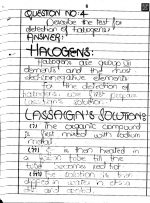 QUESTION NO:4-
Describe the test for
detection of halogens?
ANSWER:
HALOGENS:
Halogens are group VII
elements and the most
electronegative elements
for the detection of
halogens, we first prepare
Lassaign's solution.
LASSAIGN'S SOLUTION:
(i) The organic compound
is first heated with sodium
metal.
(ii) It is then heated in
a fusion tube till the
tube becomes red hot
(iii) The solution is then
dipped in water in china